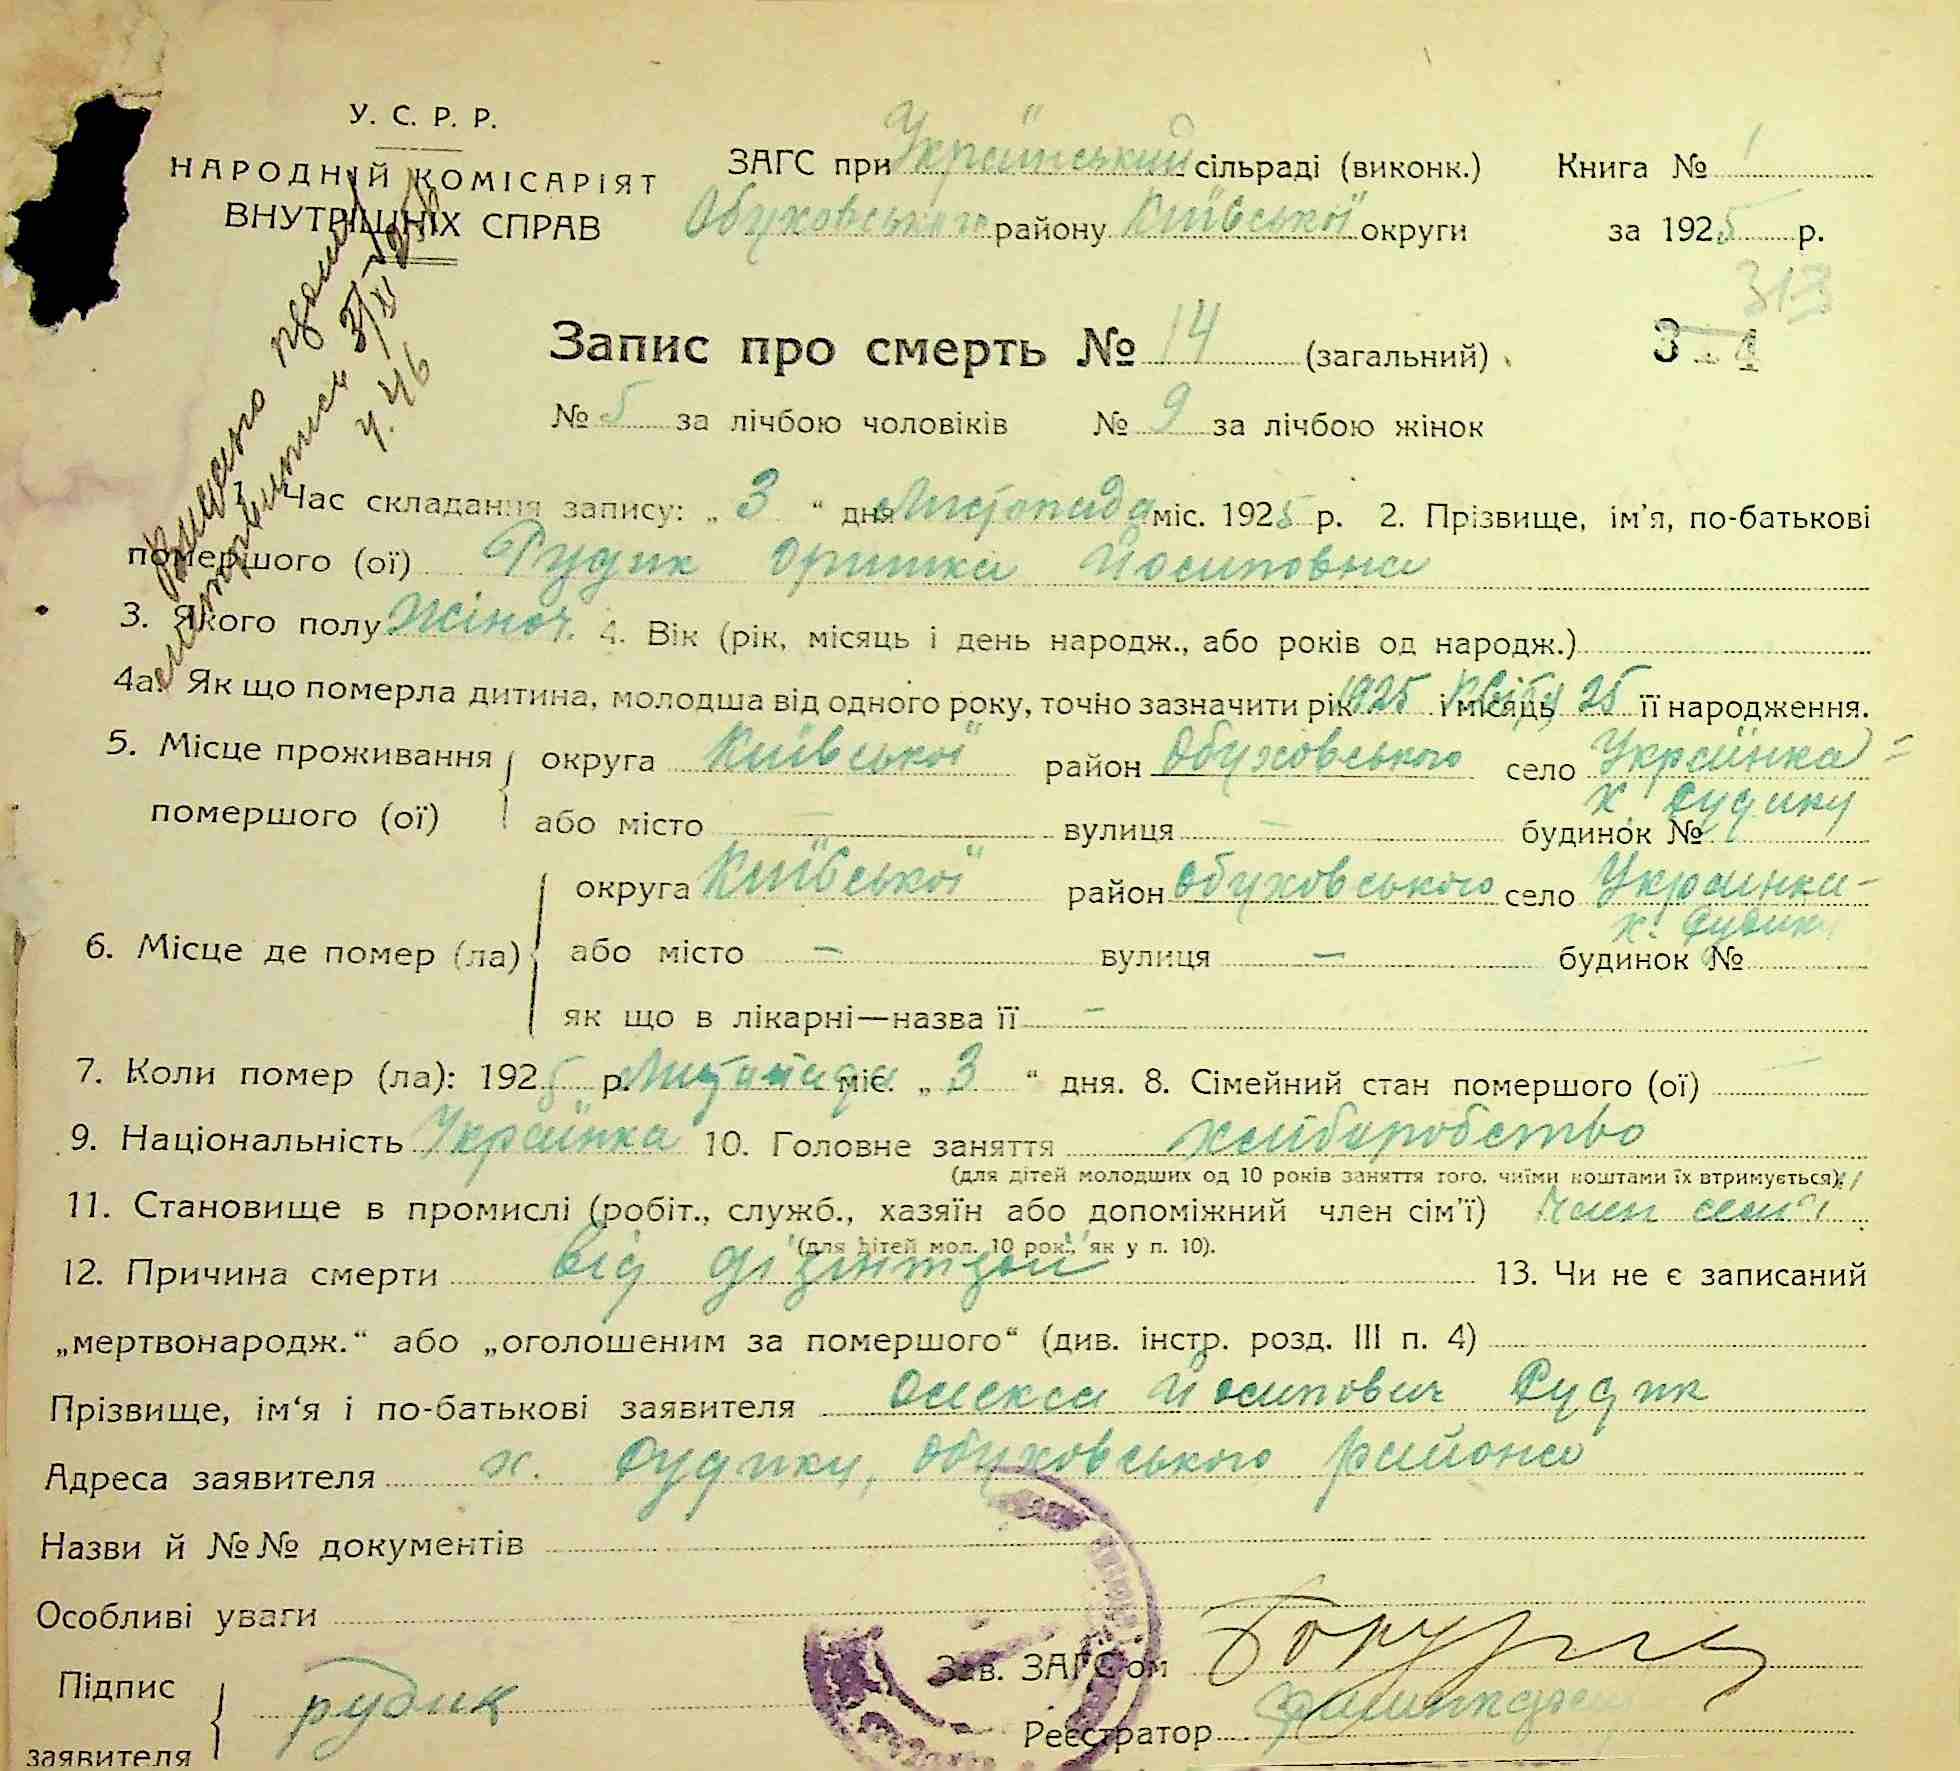 У. С. Р. Р.
НАРОДНІЙ КОМІСАРІЯТ
ВНУТРІШНІХ СПРАВ
ЗАГС при Українській сільраді (виконк.) Книга № 1
Обуховського району Київської округи за 1925 р.
313
Запис про смерть № 14 (загальний)
№ 5 за лічбою чоловіків № 9 за лічбою жінок
1. Час складання запису: „ 3 “ дня Листопада міс. 1925 р. 2. Прізвище, ім'я, по-батькові
помершого (ої) Рудик Оришка Йосиповна
3. Якого полу Жіноч. 4. Вік (рік, місяць і день народж., або років од народж.)
4а. Як що померла дитина, молодша від одного року, точно зазначити рік 1925 і місяць 25 її народження.
5. Місце проживання помершого (ої) округа Київської район Обуховського село Українка
х. Рудики
або місто – вулиця – будинок №
6. Місце де помер (ла) округа Київської район Обуховського село Українка –
х. Рудики
або місто – вулиця – будинок №
як що в лікарні—назва її –
7. Коли помер (ла): 1925 р. Листопада міс. „ 3 “ дня. 8. Сімейний стан помершого (ої)
9. Національність Українка 10. Головне заняття хліборобство
(для дітей молодших од 10 років заняття того, чиїми коштами їх втримується)
11. Становище в промислі (робіт., служб., хазяїн або допоміжний член сім'ї) член сем'ї
(для дітей мол. 10 рок., як у п. 10).
12. Причина смерти від дізінтерії 13. Чи не є записаний
„мертвонародж.“ або „оголошеним за помершого“ (див. інстр. розд. III п. 4)
Прізвище, ім'я і по-батькові заявителя Олекса Йосипович Рудик
Адреса заявителя х. Рудики, Обуховського района
Назви й №№ документів
Особливі уваги
Підпис заявителя рудик
Зав. ЗАГС'ом
Реєстратор